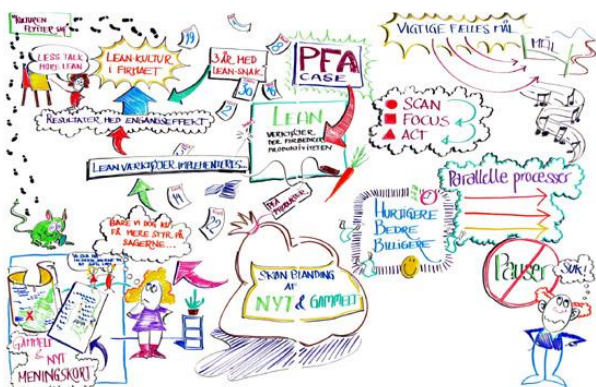 "KULTUREN
FLYTTER SIG"
LESS TALK
MORE LEAN
LEAN-KULTUR
I FIRMAET
3 ÅR MED
LEAN-SNAK
PFA
CASE
19
8
30
2
RESULTATER MED ENGANGSEFFEKT
LEAN VÆRKTØJER IMPLEMENTERES...
LEAN
VÆRKTØJER
DER FORBEDRER
PRODUKTIVITETEN
VIGTIGE FÆLLES MÅL
MÅL
SCAN
FOCUS
ACT
Parallelle processer
HURTIGERE
BEDRE
BILLIGERE
Pauser
SUK!
PFA
PRODUKTER
BARE VI DOG KU'
FÅ MERE STYR PÅ
SAGERNE...
11
22
SKØN BLANDING
AF
NYT & GAMMELT
GAMMELT
& NYT
MENINGSKORT